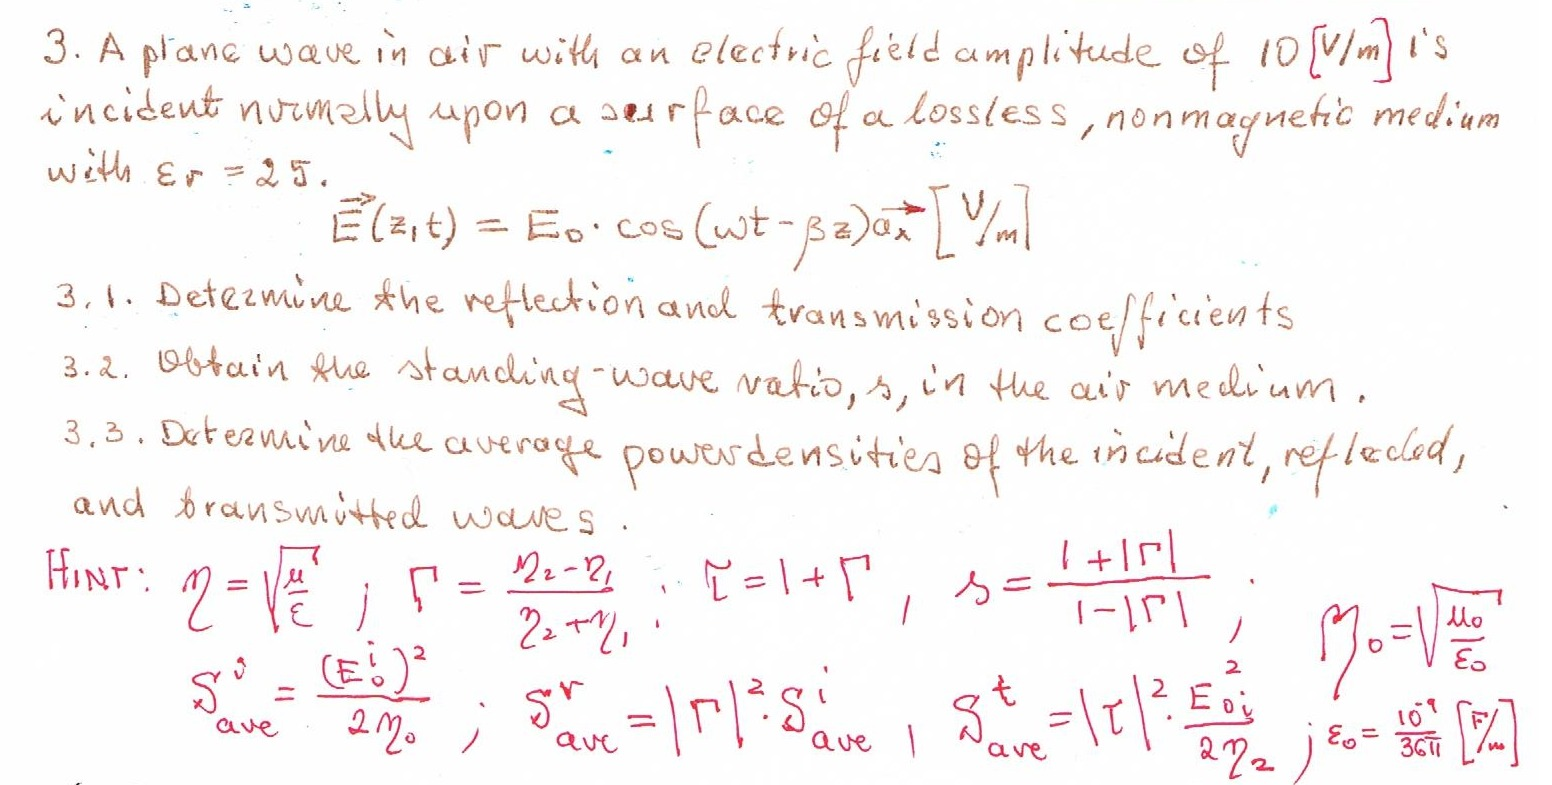 3. A plane wave in air with an electric field amplitude of 10 [V/m] is
incident normally upon a surface of a lossless, nonmagnetic medium
with εr = 25.
E⃗(z,t) = E₀· cos(ωt - βz)a⃗ₓ [V/m]
3.1. Determine the reflection and transmission coefficients
3.2. Obtain the standing-wave ratio, s, in the air medium.
3.3. Determine the average power densities of the incident, reflected,
and transmitted waves.
HINT: η = √(μ/ε) ; Γ = (η₂-η₁)/(η₂+η₁) ; τ = 1+Γ , s = (1+|Γ|)/(1-|Γ|) ; η₀ = √(μ₀/ε₀)
Sⁱave = (E₀ⁱ)²/(2η₀) ; Sʳave = |Γ|²·Sⁱave , Sᵗave = |τ|²·E₀ᵢ²/(2η₂) ; ε₀ = 10⁻⁹/36π [F/m]